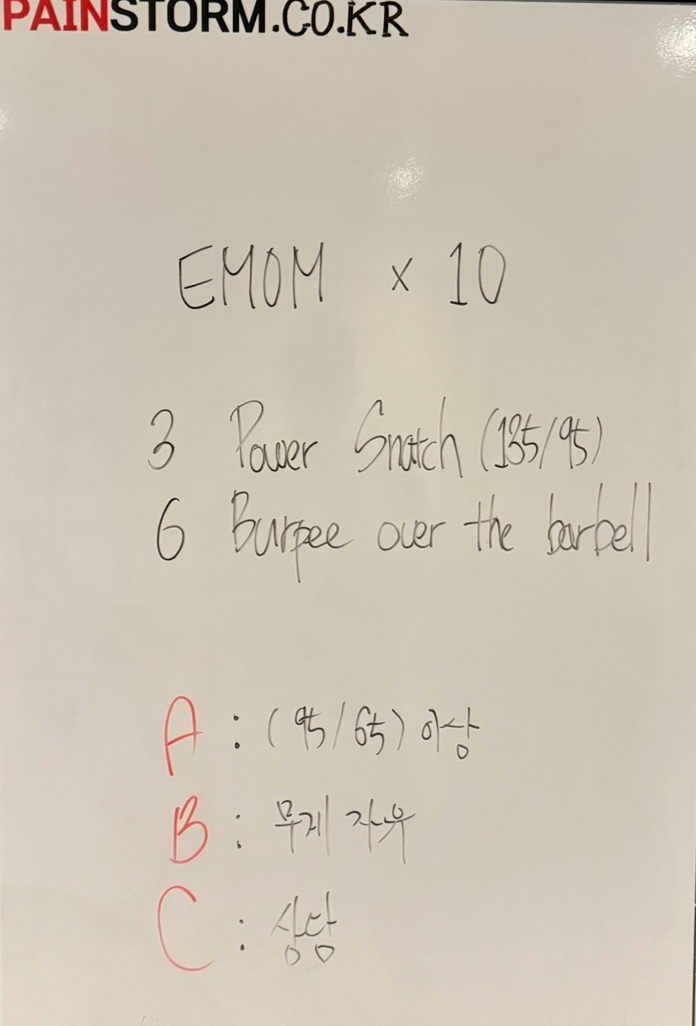 PAINSTORM.CO.KR
EMOM x 10
3 Power Snatch (135/95)
6 Burpee over the barbell
A : (95/65) 이상
B : 무게 자유
C : 상담